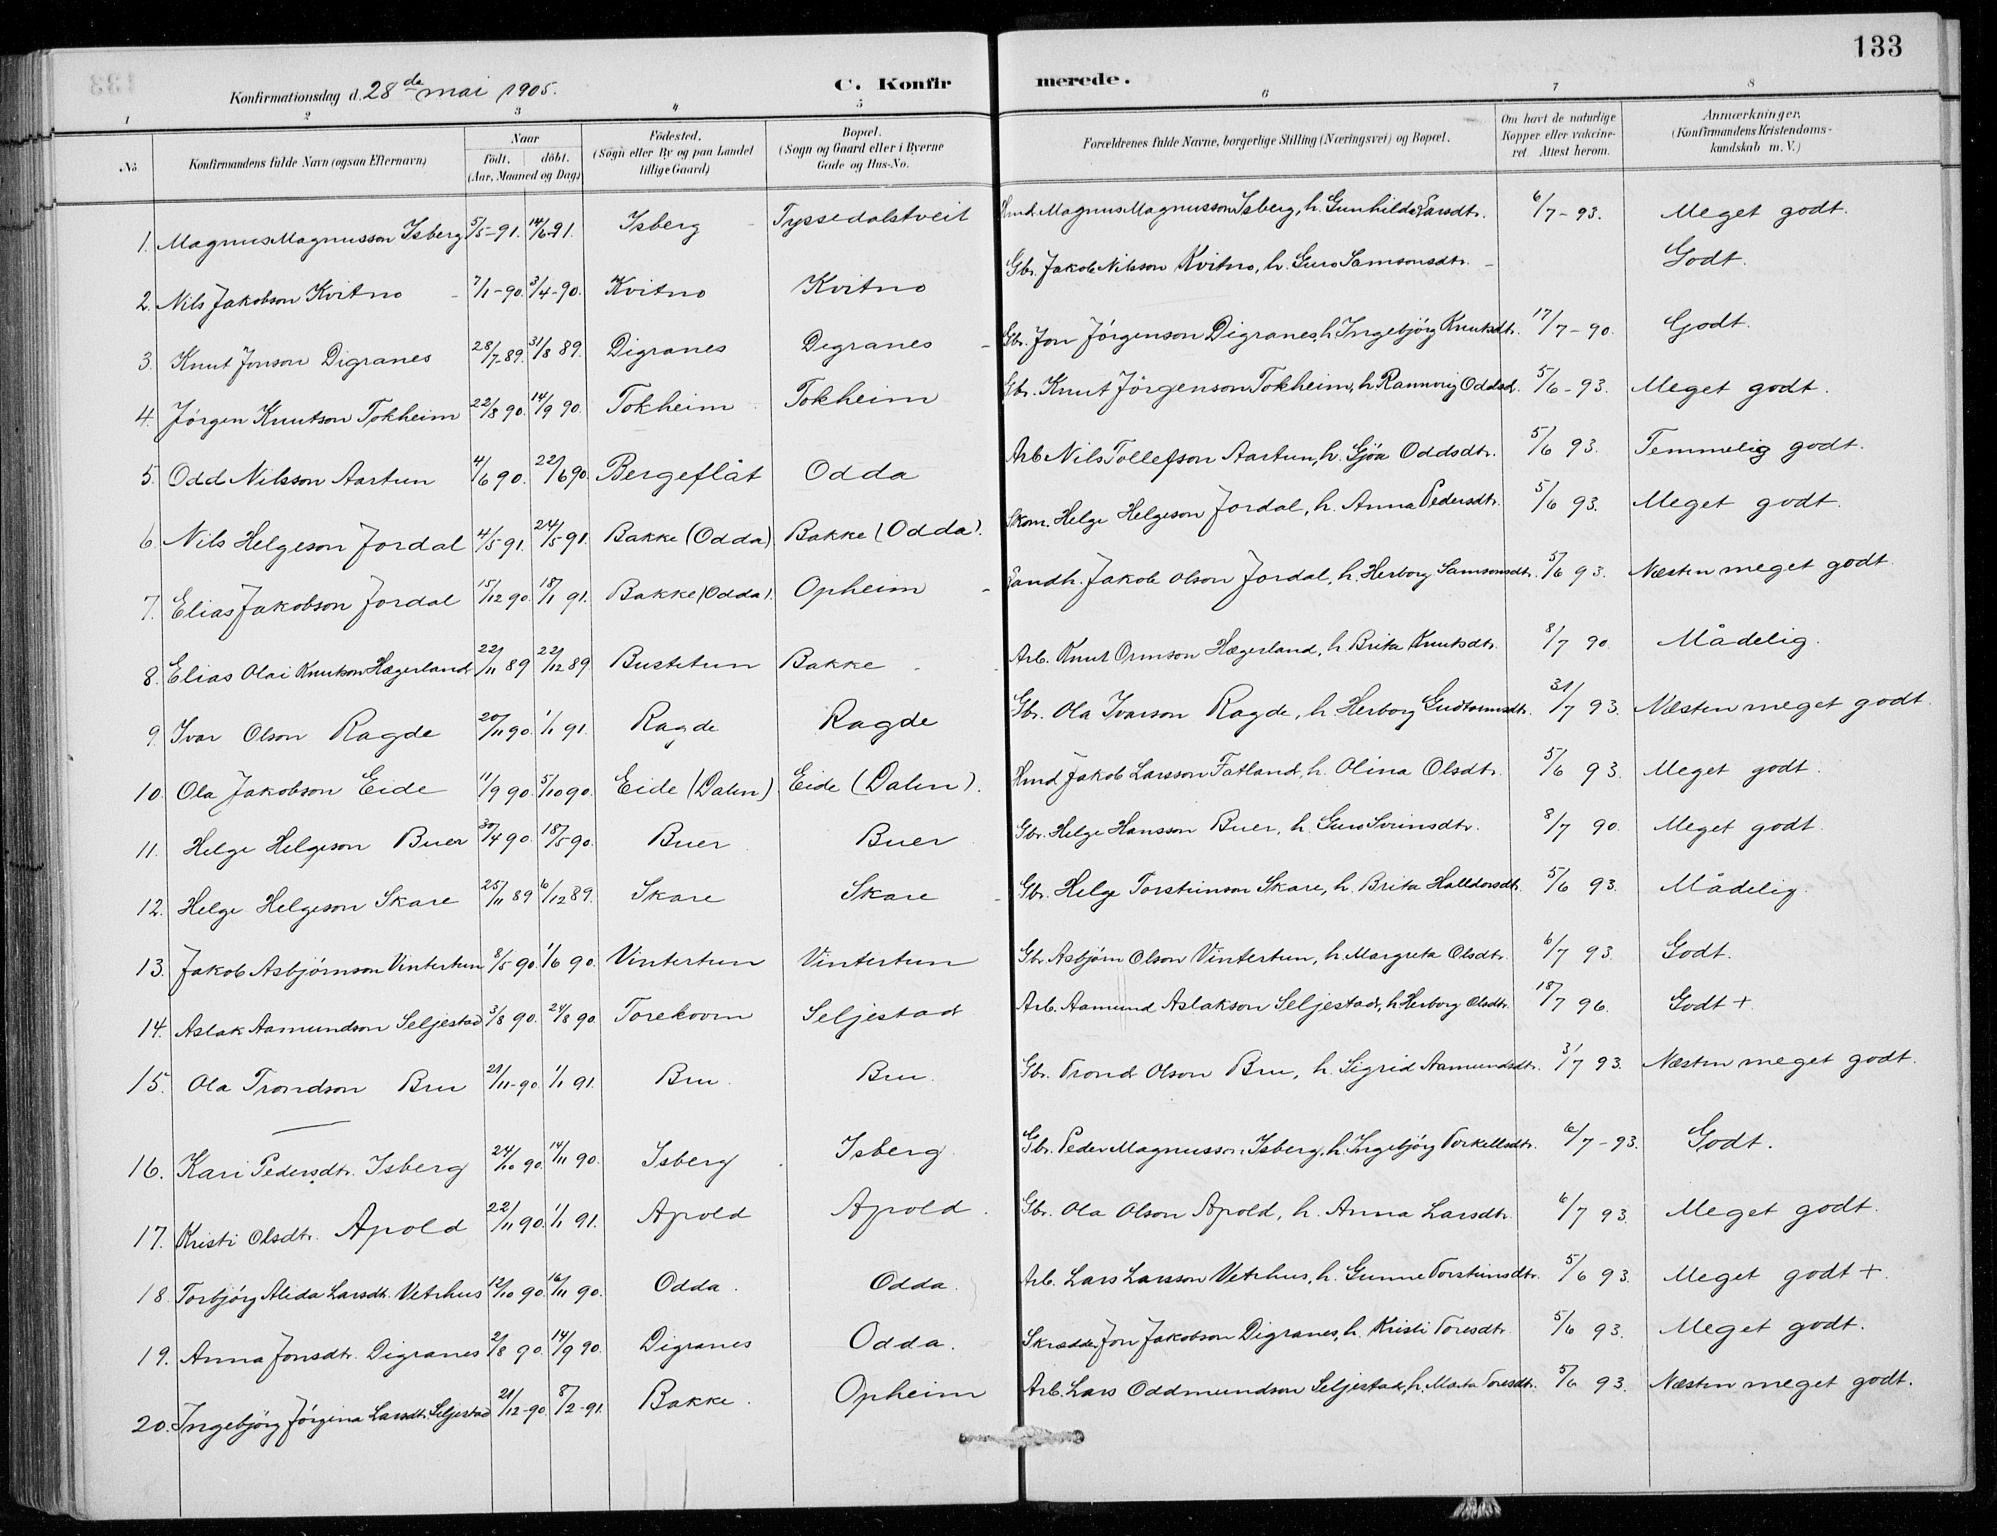 133
Konfirmationsdag d. 28de mai 1905. C. Konfir merede.
1 2 3 4 5 6 7 8
No Konfirmandens fulde Navn (ogsaa Efternavn) Naar født. døbt. (Aar, Maaned og Dag) Fødested. (Sogn eller By og paa Landet tillige Gaard) Bopæl. (Sogn og Gaard eller i Byerne Gade og Hus-No. Forældrenes fulde Navne, borgerlige Stilling (Næringsvei) og Bopæl. Om havt de naturlige Kopper eller vaccineret Attest herom. Anmærkninger. (Konfirmandens Kristendomskundskab m. V.)
1. Magnus Magnusson Isberg 5/5-91. 14/6-91. Isberg Tyssedalstveit Hmd. Magnus Magnusson Isberg, h. Gunhilda Larsdtr. 6/7-93. Meget godt.
2. Nils Jakobson Kvitno 7/1-90. 3/4-90. Kvitno Kvitno Gbr. Jakob Nilsson Kvitno, h. Guro Samsonsdtr. Godt.
3. Knut Jonson Digranes 28/7-89. 31/8 89. Digranes Degranes Gbr. Jon Jørgenson Digranes, h Ingebjørg Knutsdtr. 17/7-90. Godt.
4. Jørgen Knutson Tokheim 22/8 90. 14/9 90. Tokheim Tokheim Gbr. Knut Jørgenson Tokheim, h. Rannvеig Oddsd. 5/6-93. Meget godt.
5. Odd Nilsson Aartun 4/6 90. 22/6 90. Bergeflåt Odda Arb Nils Tollefson Aartun, h. Gjøa Oddsdtr. 5/6 93. Temmelig godt.
6. Nils Helgeson Jordal 4/5-91. 24/5-91. Bakke (Odda) Bakke (Odda). Skom. Helge Helgeson Jordal, h. Anna Pedersdtr. 5/6 93. Meget godt.
7. Elias Jakobson Jordal 15/12 90. 18/1 91. Bakke (Odda). Opheim Landh. Jakob Olson Jordal, h. Herborg Samsonsdtr. 5/6 93. Næsten meget godt.
8. Elias Olai Knutson Hægerland 22/11 89 22/12 89. Bustetun Bakke Arb. Knut Ormson Hægerland, h Brita Knutsdtr. 8/7 90. Mådelig.
9. Ivar Olson Ragde 20/11 90. 1/1 91. Ragde Ragde Gbr. Ola Ivarson Ragde, h. Herborg Gudtormsdtr. 31/7 93. Næsten meget godt.
10. Ola Jakobson Eide 11/9 90. 5/10 90. Eide (Dalen) Eide (Dalen). Hmd Jakob Larsson Fatland, h. Olina Olsdtr. 5/6 93. Meget godt.
11. Helge Helgeson Buer 30/4 90. 18/5 90. Buer Buer Gbr. Helge Hansson Buer, h. Guro Sveinsdtr. 8/7 90. Meget godt.
12. Helge Helgeson Skare 25/11 89 6/12 89. Skare Skare Gbr. Helge Torsteinson Skare, h. Brita Halldorsdt. 5/6 93. Mådelig.
13. Jakob Asbjørnson Vintertun 8/5 90. 1/6 90. Vintertun Vintertun Gbr Asbjørn Olson Vintertun, h. Margreta Olsdtr. 6/7 93. Godt.
14. Aslak Aamundson Seljestad 3/8 90. 24/8 90. Seljestad Arb. Aamund Aslakson Seljestad, h Herborg Olsdtr. 18/7 96. Godt +.
15. Ola Trondson Bru 21/11-90. 1/1 91. Bru. Bru. Gbr. Trond Olson Bru, h. Sigrid Aamundsdtr. 31/7 93. Næsten meget godt.
16. Kari Pedersdtr. Isberg 24/10 90. 14/11 90. Isberg Isberg Gbr. Peder Magnusson Isberg, h. Ingebjørg Torkellsdtr. 6/7-93. Godt.
17. Kristi Olsdtr. Apold 22/11 90. 1/1 91. Apold Apold. Gbr. Ola Olson Apold, h. Anna Larsdtr. 6/7 93. Meget godt.
18. Torbjørg Alida Larsdtr. Vetrhus 12/10 90. 16/11 90. Odda. Odda. Arb. Lars Larsson Vetrhus, h. Gunne Torsteinsdtr. 5/6 93. Meget godt +.
19. Anna Jonsdtr. Digranes 2/8 90. 14/9 90. Digranes Odda. Skrædder Jon Jakobson Digranes, h. Kristi Toresdtr. 5/6 93. Meget godt.
20. Ingebjørg Jørgina Larsdtr. Seljestad 21/12-90. 8/2-91. Bakke. Opheim Arb. Lars Oddmundson Seljestad, h. Marta Toresdtr. 5/6 93. Næsten meget godt.